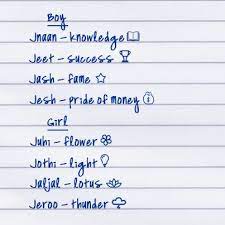 Boy
Jnaan – knowledge
Jeet – success
Jash – fame
Jesh – pride of money
Girl
Juhi – flower
Jothi – light
Jaljal – lotus
Jeroo – thunder